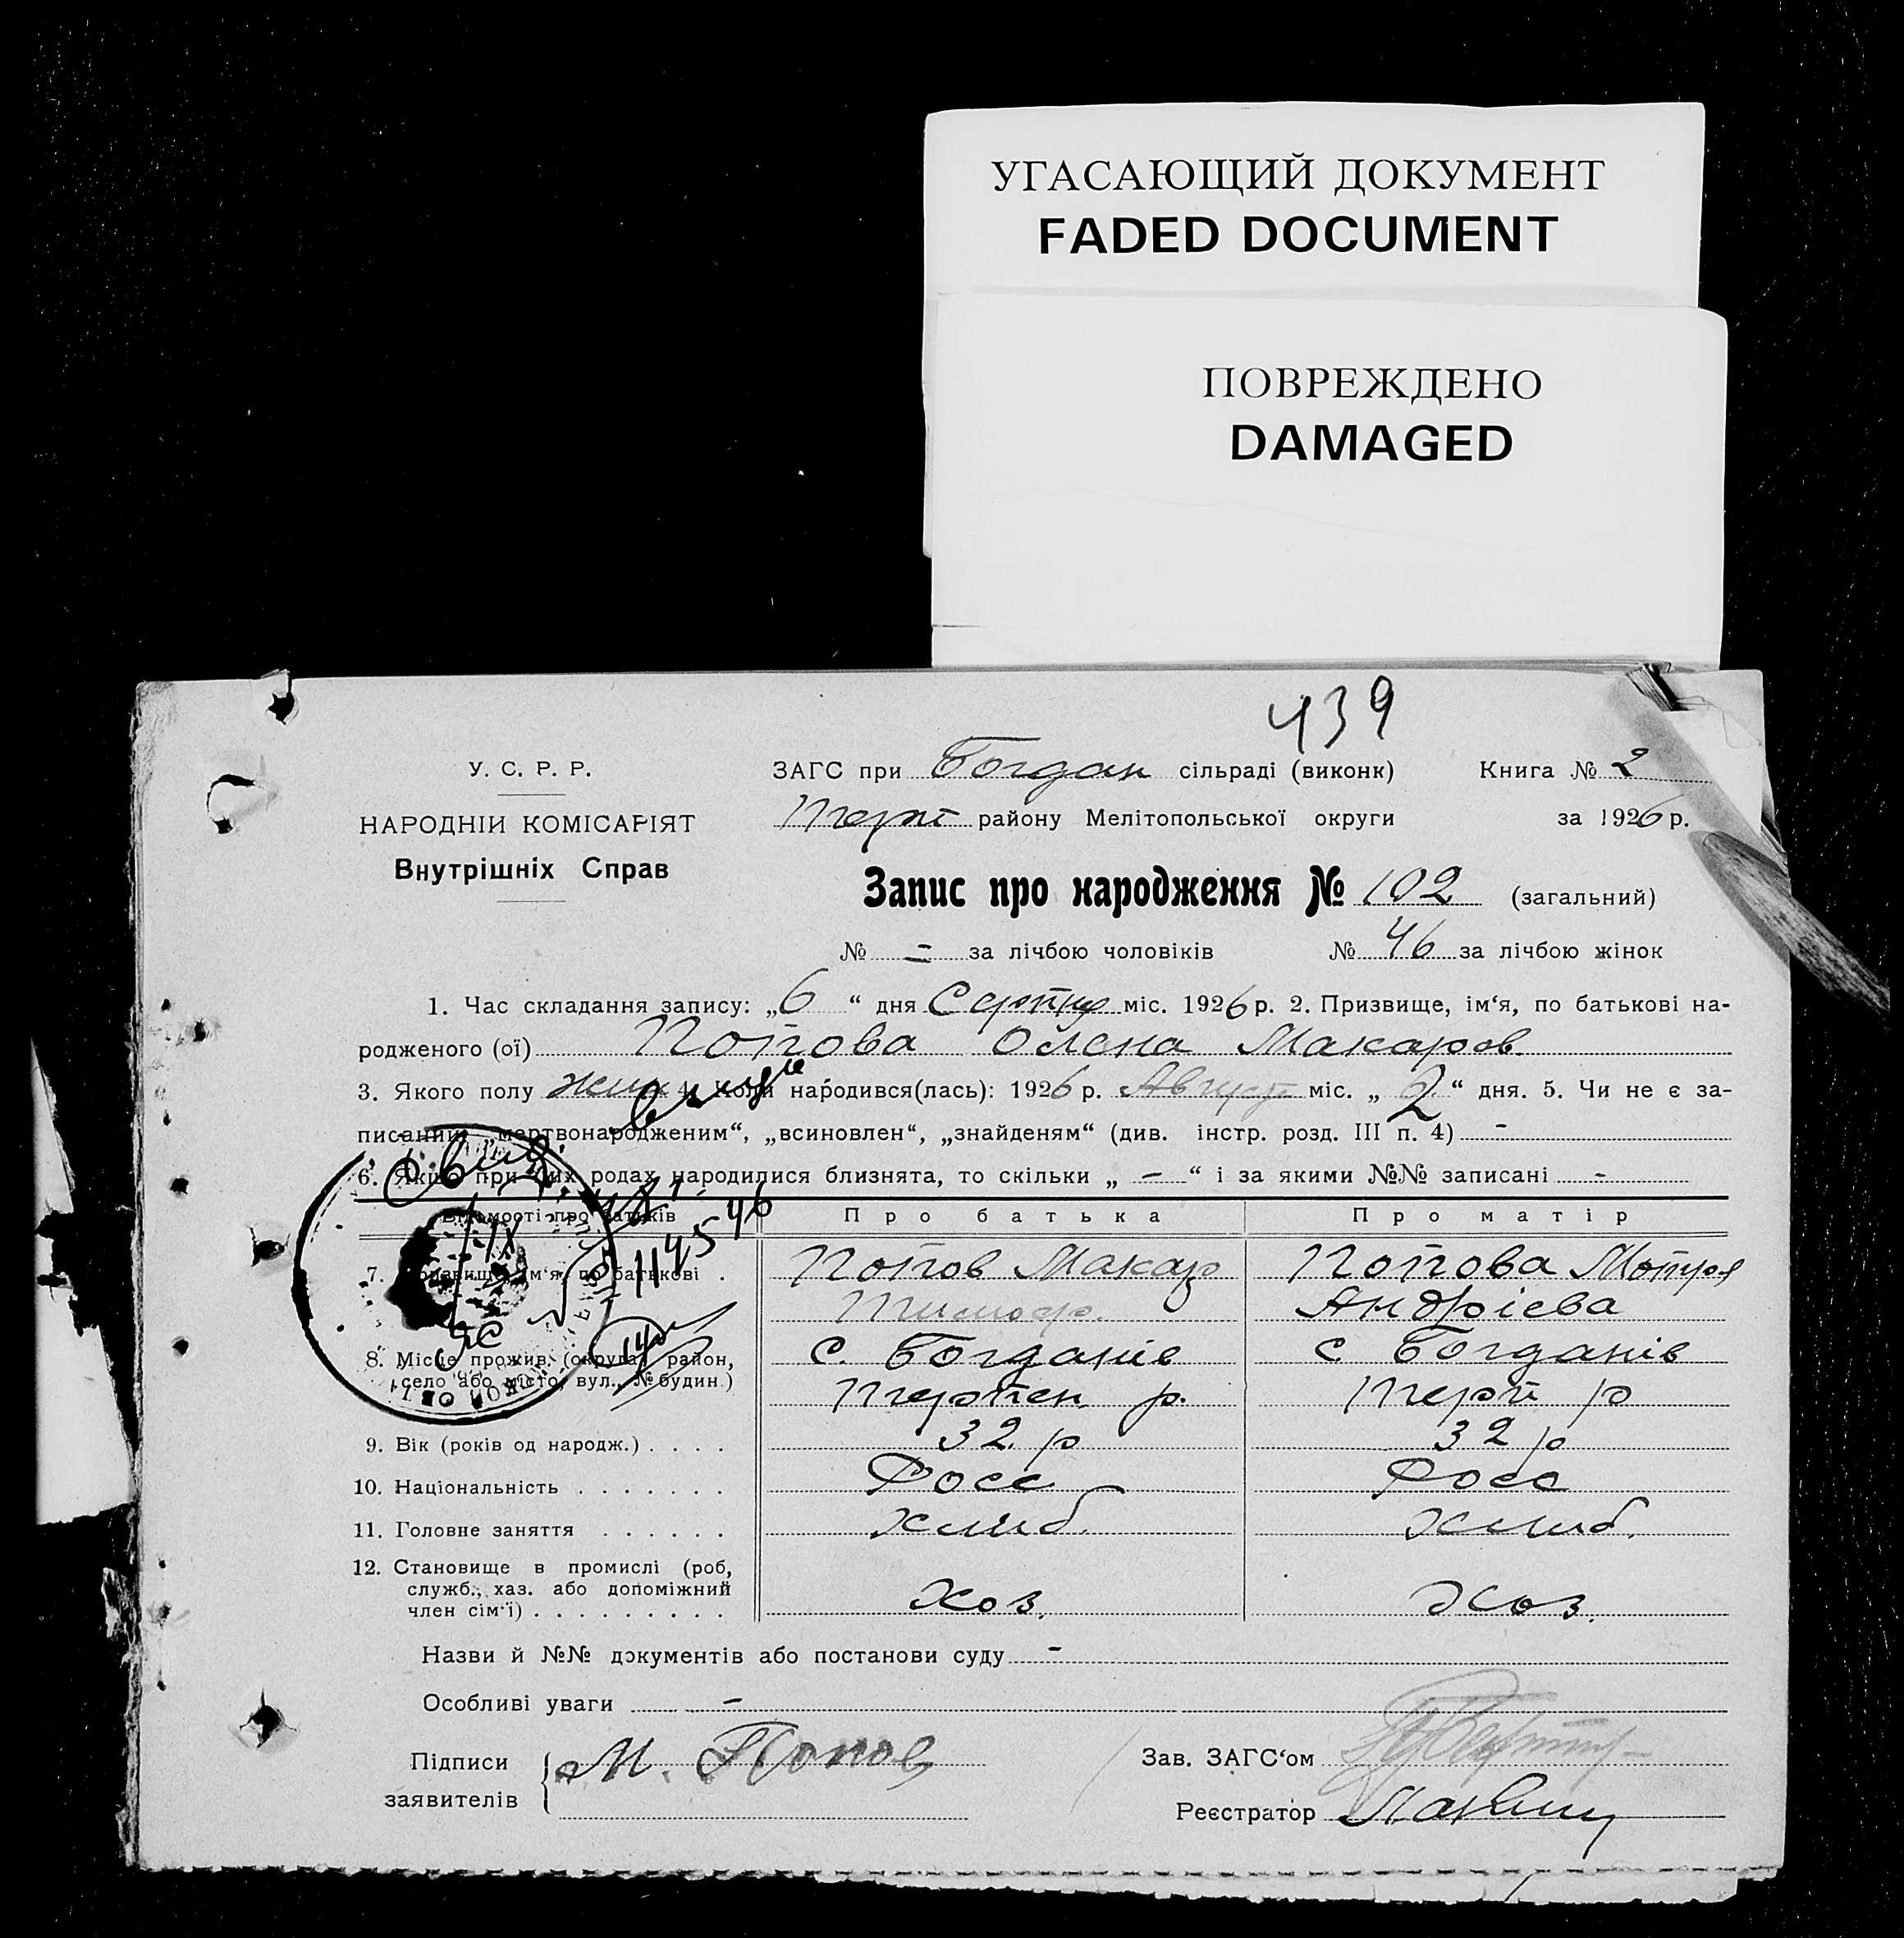 УГАСАЮЩИЙ ДОКУМЕНТ
FADED DOCUMENT
ПОВРЕЖДЕНО
DAMAGED
439
У. С. Р. Р.
НАРОДНІЙ КОМІСАРІЯТ
Внутрішніх Справ
ЗАГС при Богдан сільраді (виконк) Книга № 2
Терп району Мелітопольської округи за 1926 р.
Запис про народження № 102 (загальний)
№ - за лічбою чоловіків № 46 за лічбою жінок
1. Час складання запису: „6“ дня Серпня міс. 1926 р. 2. Призвище, ім‘я, по батькові на-
родженого (ої) Попова Олена Макаров
3. Якого полу жін 4. Коли народився(лась): 1926 р. Август міс. „2“ дня. 5. Чи не є за-
писаний „мертвонародженим“, „всиновлен“, „знайденям“ (див. інстр. розд. III п. 4) -
6. Якщо при цих родах народилися близнята, то скільки „ - “ і за якими №№ записані -
Відомості про батьків Про батька Про матір
7. Призвище, ім‘я, по батькові . Попов Макар Попова Мотря
Тимоф. Андрієва
8. Місце прожив. (округа, район, с. Богданів с. Богданів
село або місто, вул., № будин.) Терпен р. Терп р
9. Вік (років од народж.) . . . . 32 р 32 р
10. Національність . . . . . . . Росс Росс
11. Головне заняття . . . . . . Хліб. Хліб.
12. Становище в промислі (роб,
служб., хаз. або допоміжний
член сім‘ї) . . . . . . . . . Хоз. Хоз.
Назви й №№ документів або постанови суду -
Особливі уваги -
Підписи М. Попов Зав. ЗАГС‘ом
заявителів Реєстратор